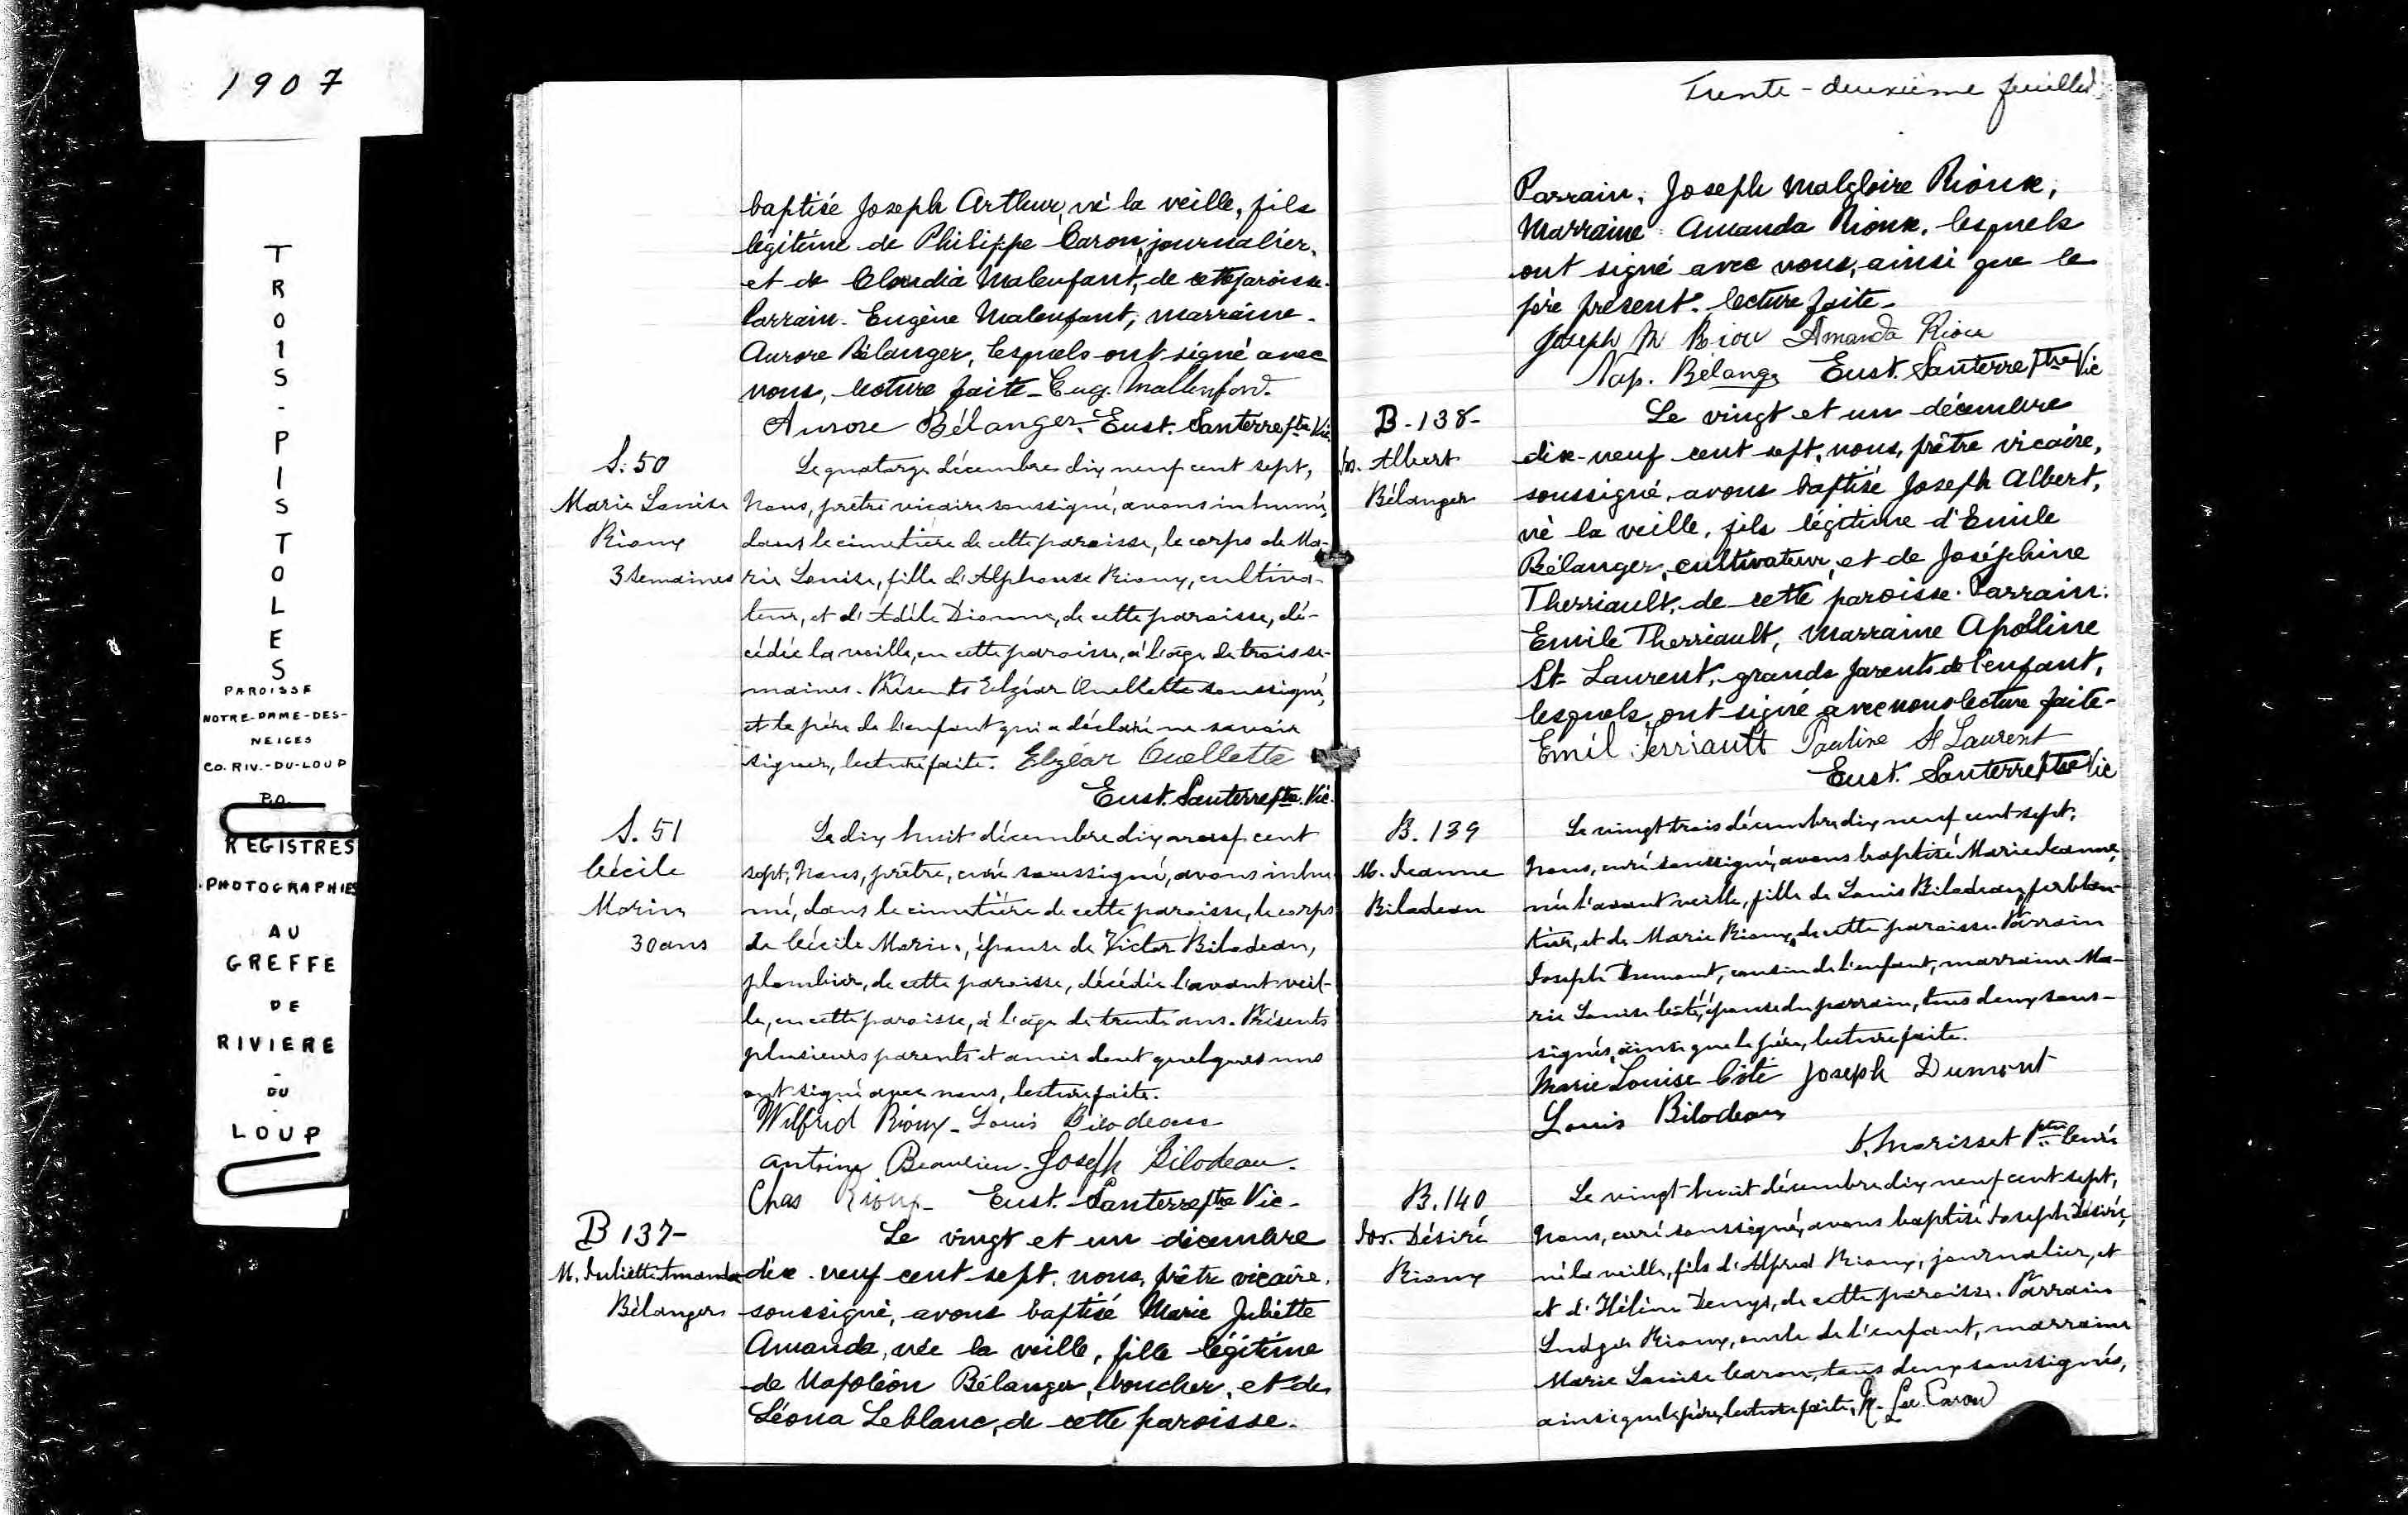 1907
TROIS-PISTOLES
PAROISSE
NOTRE-DAME-DES-
NEIGES
CO. RIV.-DU-LOUP
P.Q.
REGISTRES
PHOTOGRAPHIES
AU
GREFFE
DE
RIVIERE
-
DU
-
LOUP
baptisé Joseph Arthur, né la veille, fils
légitime de Philippe Caron, journalier,
et de Claudia Malenfant, de cette paroisse.
Parrain. Eugène Malenfant, marraine.
Aurore Bélanger, lesquels ont signé avec
nous, lecture faite - Eug. Mallenfand.
Aurore Bélanger. Eust. Santerre Ptre Vic.
S. 50
Marie Louise
Rioux
3 semaines
Le quatorze décembre dix neuf cent sept,
Nous, prêtre vicaire soussigné, avons inhumé,
dans le cimetière de cette paroisse, le corps de Ma-
rie Louise, fille d'Alphonse Rioux, cultiva-
teur, et d'Adèle Dionne, de cette paroisse, dé-
cédée la veille, en cette paroisse, à l'âge de trois se-
maines. Présents Elzéar Ouellette soussigné,
et le père de l'enfant qui a déclaré ne savoir
signer, lecture faite. Elzéar Ouellette
Eust. Santerre Ptre. Vic.
S. 51
Cécile
Morin
30 ans
Le dix huit décembre dix neuf cent
sept, Nous, prêtre, curé soussigné, avons inhu-
mé, dans le cimetière de cette paroisse, le corps
de Cécile Morin, épouse de Victor Bilodeau,
plombier, de cette paroisse, décédée l'avant veil-
le, en cette paroisse, à l'âge de trente ans. Présents
plusieurs parents et amis dont quelques uns
ont signé avec nous, lecture faite.
Wilfrid Rioux - Louis Bilodeau
Antoine Beaulieu - Joseph Bilodeau.
Chas Rioux - Eust. Santerre Ptre Vic -
B 137-
M. Juliette Amanda
Bélanger
Le vingt et un décembre
dix-neuf cent sept, nous, prêtre vicaire,
soussigné, avons baptisé Marie Juliette
Amanda, née la veille, fille légitime
de Napoléon Bélanger, boucher, et de
Léona Leblanc, de cette paroisse.
Trente-deuxième feuillet
Parrain, Joseph Malgloire Rioux,
Marraine Amanda Rioux, lesquels
ont signé avec nous, ainsi que le
père présent. lecture faite -
Joseph M Riou Amanda Riou
Nap. Bélanger Eust. Santerre Ptre Vic
B-138-
Jos. Albert
Bélanger
Le vingt et un décembre
dix-neuf cent sept, nous, prêtre vicaire,
soussigné, avons baptisé Joseph Albert,
né la veille, fils légitime d'Emile
Bélanger, cultivateur, et de Joséphine
Therriault, de cette paroisse. Parrain.
Emile Therriault, Marraine Apolline
St-Laurent, grands parents de l'enfant,
lesquels ont signé avec nous lecture faite -
Emil Terriault Pauline St Laurent
Eust. Santerre Ptre Vic
B. 139
M. Jeanne
Bilodeau
Le vingt trois décembre dix neuf cent sept,
Nous, curé soussigné, avons baptisé Marie Jeanne,
née l'avant veille, fille de Louis Bilodeau, ferblan-
tier, et de Marie Rioux, de cette paroisse. Parrain
Joseph Dumont, cousin de l'enfant, marraine Ma-
rie Louise Côté, épouse du parrain, tous deux sous-
signés, ainsi que le père, lecture faite.
Marie Louise Côté Joseph Dumont
Louis Bilodeau
Morisset Ptre Curé
B. 140
Jos. Désiré
Rioux
Le vingt huit décembre dix neuf cent sept,
Nous, curé soussigné, avons baptisé Joseph Désiré,
né la veille, fils d'Alfred Rioux, journalier, et
et d'Hélène Denys, de cette paroisse. Parrain
Ludger Rioux, oncle de l'enfant, marraine
Marie Louise Caron, tous deux soussignés,
ainsi que le père, lecture faite. M. Lse Caron